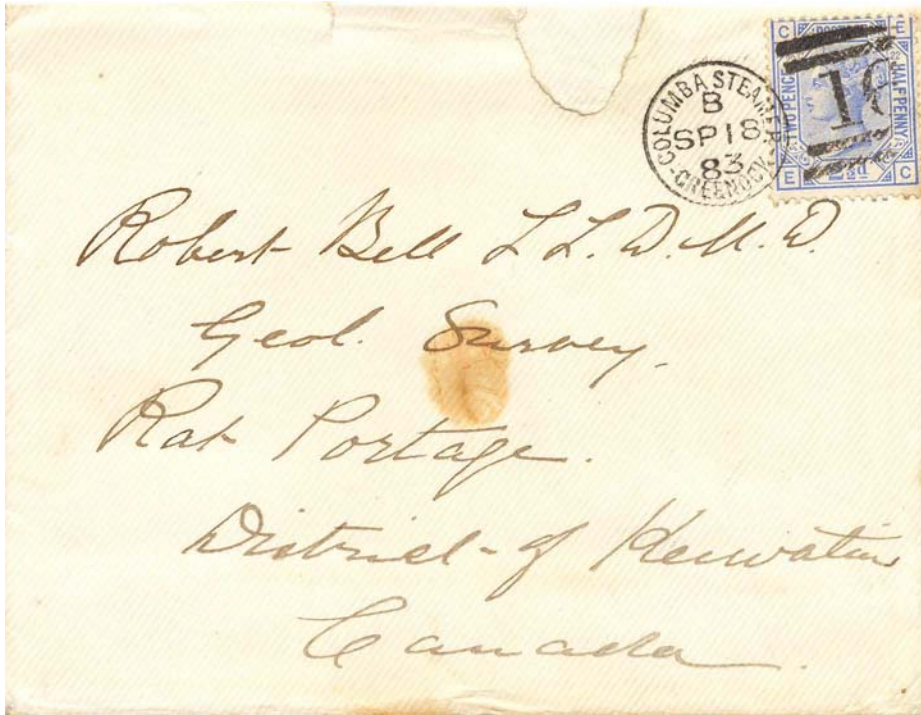 COLUMBA STEAMER
B
SP 18
83
GREENOCK
C E
POSTAGE
TWO PENCE HALF PENNY
2½d
E C
Robert Bell L L. D. M. D.
Geol. Survey.
Rat Portage.
District of Keewatin
Canada.